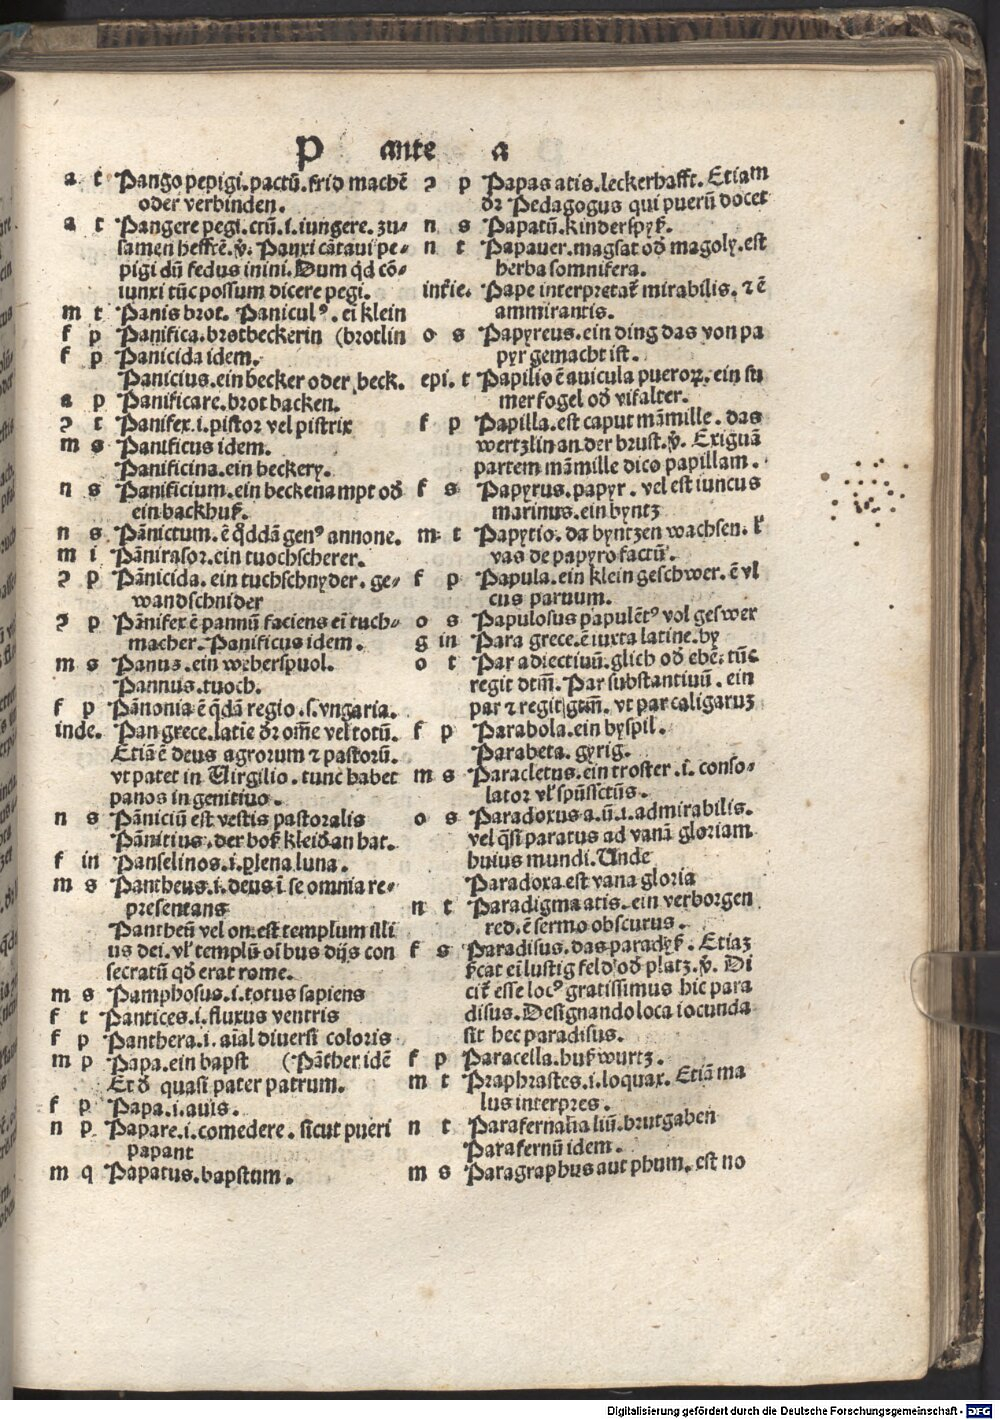 P ante a
a t Pango pepigi. pactū. frid machē
oder verbinden.
a t Pangere pegi. ctū. i. iungere. zu-
samen hefftē. v̄. Panxi cātaui pe-
pigi dū fedus inini. Dum qd cō-
iunxi tūc possum dicere pegi.
m t Panis brot. Panicul⁹. ei klein
f p Panifica. brotbeckerin (brotlin
f p Panicida idem.
Panicius. ein becker oder beck.
a p Panificare. brot backen.
ꝯ t Panifex. i. pistor vel pistrix
m s Panificus idem.
Panificina. ein beckery.
n s Panificium. ein beckenampt od̄
ein backhuß.
n s Pānictum. ē qddā gen⁹ annone.
m i Pānirasor. ein tuochscherer.
ꝯ p Pānicida. ein tuchschnyder. ge-
wandschnider
ꝯ p Pānifex ē pannū faciens ei tuch-
macher. Panificus idem.
m s Panus. ein weberspuol.
Pannus. tuoch.
f p Pānonia ē qdā regio. s. vngaria.
inde. Pan grece. latie dr̄ om̄e vel totū.
Etiā ē deus agrorum ⁊ pastorū.
vt patet in Virgilio. tunc habet
panos in genitiuo.
n s Pāniciū est vestis pastoralis
Pānitius. der boß kleid an hat.
f in Panselinos. i. plena luna.
m s Pantheus. i. deus i se omnia re-
presentans
Pantheū vel on. est templum illi
us dei. vl' templū oībus dijs con
secratū qd erat rome.
m s Pamphosus. i. totus sapiens
f t Pantices. i. fluxus ventris
f p Panthera. i. aīal diuersi coloris
m p Papa. ein bapst (Pāther idē
Et d̄ quasi pater patrum.
f p Papa. i. auis.
n p Papare. i. comedere. sicut pueri
papant
m q Papatus. bapstum.
ꝯ p Papas atis. leckerhafft. Etiam
dr̄ Pedagogus qui puerū docet
n s Papatū. kinderspyß.
n t Papauer. magsat od̄ magoly. est
herba somnifera.
intie. Pape interpretat̄ mirabilis. ⁊ ē
ammirantis.
o s Papyreus. ein ding das von pa
pyr gemacht ist.
epi. t Papilio ē auicula pueroꝝ. ein su
merfogel od̄ vifalter.
f p Papilla. est caput māmille. das
wertzlin an der brust. v̄. Exiguā
partem māmille dico papillam.
f s Papyrus. papyr. vel est iuncus
marinus. ein byntz
m t Papyrio. da byntzen wachsen. l'
vas de papyro factū.
f p Papula. ein klein geschwer. ē vl
cus paruum.
o s Papulosus papulēt⁹ vol geswer
g in Para grece. ē iuxta latine. by
o t Par adiectiuū. glich od̄ ebē. tūc
regit dtm̄. Par substantiuū. ein
par ⁊ regit gtm̄. vt par caligaruz
f p Parabola. ein byspil.
Parabeta. gyrig.
m s Paracletus. ein troster. i. conso-
lator vl' spūssctūs.
o s Paradoxus a. ū. i. admirabilis.
vel q̄si paratus ad vanā gloriam
huius mundi. Unde
Paradoxa est vana gloria
n t Paradigma atis. ein verborgen
red. ē sermo obscurus.
f s Paradisus. das paradyß. Etiaz
ßcat ei lustig feld od̄ platz. v̄. Di
cit̄ esse loc⁹ gratissimus hic para
disus. Designando loca iocunda
sit hec paradisus.
f p Paracella. hußwurtz.
m t Praphrastes. i. loquax. Etiā ma
lus interpres.
n t Parafernalia liū. brutgaben
Parafernū idem.
m s Paragraphus aut phum. est no
Digitalisierung gefördert durch die Deutsche Forschungsgemeinschaft - DFG